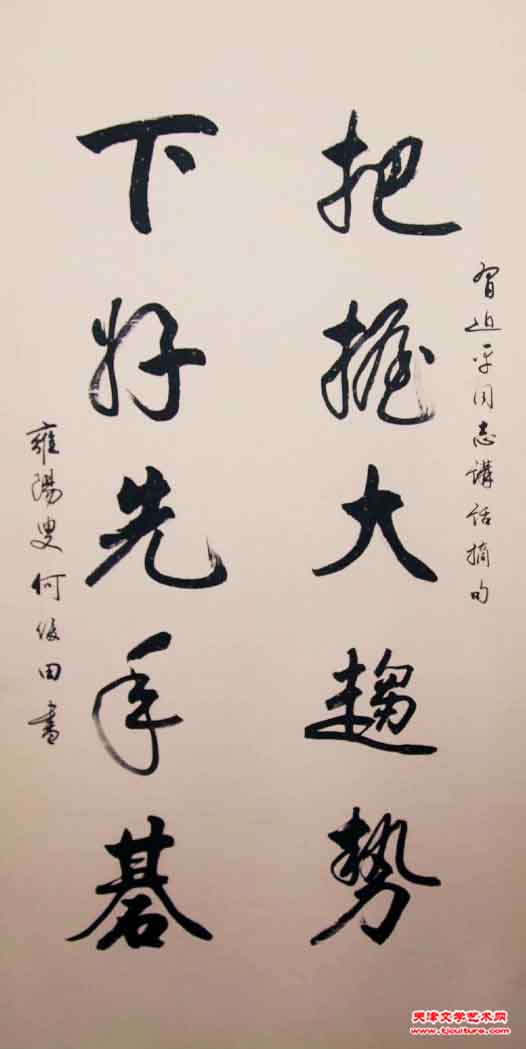 習近平同志講話摘句
把握大趨势
下好先手碁
雍陽叟何俊田書
天津文学艺术网
www.tjculture.com